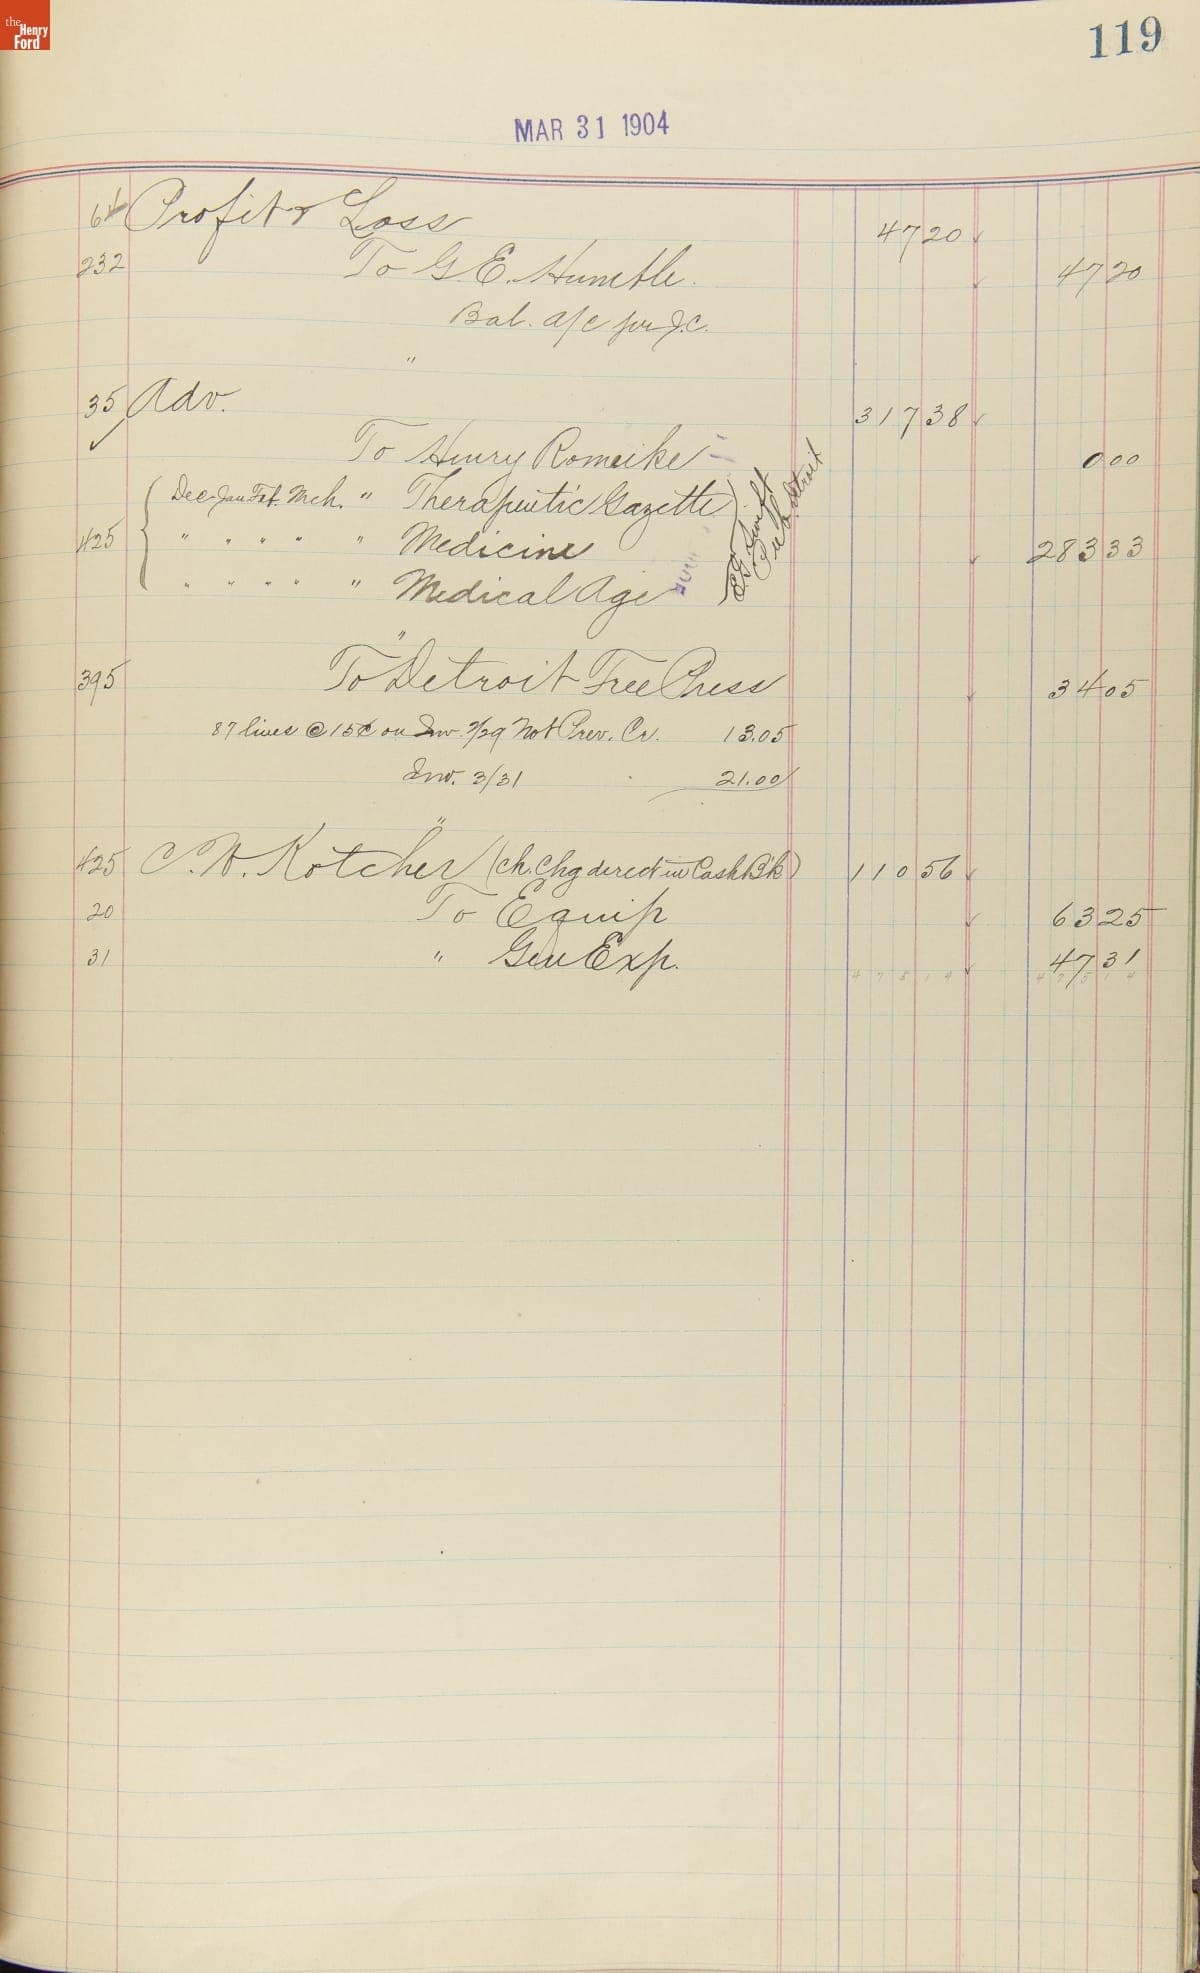 the Henry Ford
119
MAR 31 1904
Profit & Loss 47 20 ✓
232 To G. E. Humble. ✓ 47 20
Bal. a/c per J.C.
"
35 Adv. 317 38 ✓
✓ To Henry Romeike 0 00
Dec. Jan Feb. Mch. " Therapeutic Gazette
425 " " " " " Medicine ✓ 283 33
" " " " " Medical Age
E. G. Swift
Pub. Detroit
"
395 To Detroit Free Press ✓ 34 05
87 lines @ 15¢ on Inv. 2/29 Not Prev. Cr. 13.05
Inv. 3/31 21.00
"
425 C. W. Kotcher (Ch. Chg direct in Cash B'k) 110 56 ✓
20 To Equip ✓ 63 25
31 " Gen Exp. ✓ 47 31
475 14 475 14